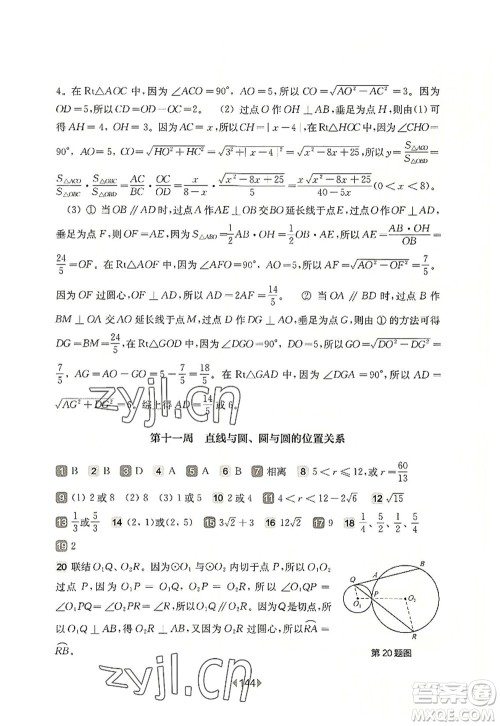 4。在 Rt△AOC 中，因为∠ACO＝90°，AO＝5，所以 CO＝√(AO²－AC²)＝3。因为
OD＝5，所以 CD＝OD－OC＝2。 （2）过点 O 作 OH⊥AB，垂足为点 H，所以可
得 AH＝4，OH＝3。因为 AC＝x，所以 CH＝|x－4|。在 Rt△HOC 中，因为∠CHO＝90°，
所以 CO＝√(HO²＋HC²)＝√(3²＋|x－4|²)＝√(x²－8x＋25)，所以 y＝S△ACO/S△OBD＝
S△ACO/S△OBC·S△OBC/S△OBD＝AC/BC·OC/OD＝x/(8－x)·√(x²－8x＋25)/5＝x√(x²－8x＋25)/(40－5x)（0＜x＜8）。
（3）① 当 OB∥AD 时，过点 A 作 AE⊥OB 交 BO 延长线于点 E，过点 O 作 OF⊥AD，
垂足为点 F，所以 AE＝OF。因为 S△ABO＝1/2AB·OH＝1/2OB·AE，所以 AE＝AB·OH/OB
＝24/5＝OF。在 Rt△AOF 中，因为∠AFO＝90°，AO＝5，所以 AF＝√(AO²－OF²)＝7/5。
因为 OF 过圆心，OF⊥AD，所以 AD＝2AF＝14/5。 ② 当 OA∥BD 时，过点 B 作
BM⊥OA，垂足为点 M，过点 D 作 DG⊥AO 交 AO 延长线于点 G，由①的方法可得
DG＝BM＝24/5。在 Rt△GOD 中，因为∠DGO＝90°，DO＝5，所以 GO＝√(DO²－DG²)＝
7/5，AG＝AO＋GO＝18/5。在 Rt△GAD 中，因为∠DGA＝90°，所以 AD＝
√(AG²＋DG²)＝6。综上得 AD＝14/5或 6。
第十一周 直线与圆、圆与圆的位置关系
1 B 2 B 3 D 4 A 5 B 6 B 7 相离 8 5＜r≤12，或 r＝60/13
9 （1）2 或 8 （2）2＜r＜8 （3）1 或 5 10 4 11 6－2√5 12 √15
13 1/3或5/3 14 （2，1）或（2，5） 15 3√2＋3 16 2√10 17 9 18 1/4、2/5、4/5
19 2
20 联结 O₁Q、O₂R。因为⊙O₁与⊙O₂内切于点 P，所以 O₁O₂
过点 P，因为 O₁Q＝O₁P，所以∠O₁QP＝∠O₁PQ。同理可得
∠O₂PR＝∠O₂RP。因为∠O₁PQ＝∠O₂PR，所以∠O₁QP＝
∠O₂RP，所以 O₁Q∥O₂R。因为 QB 与⊙O₁相切于点 Q，所以
O₁Q⊥AB，所以 O₂R⊥AB。因为 O₂R 过圆心，所以 R͡A＝
R͡B。
Q A B P O₁ O₂ R
第 20 题图
144
zyjl.cn
zyjl.cn
答案
MXQE.COM